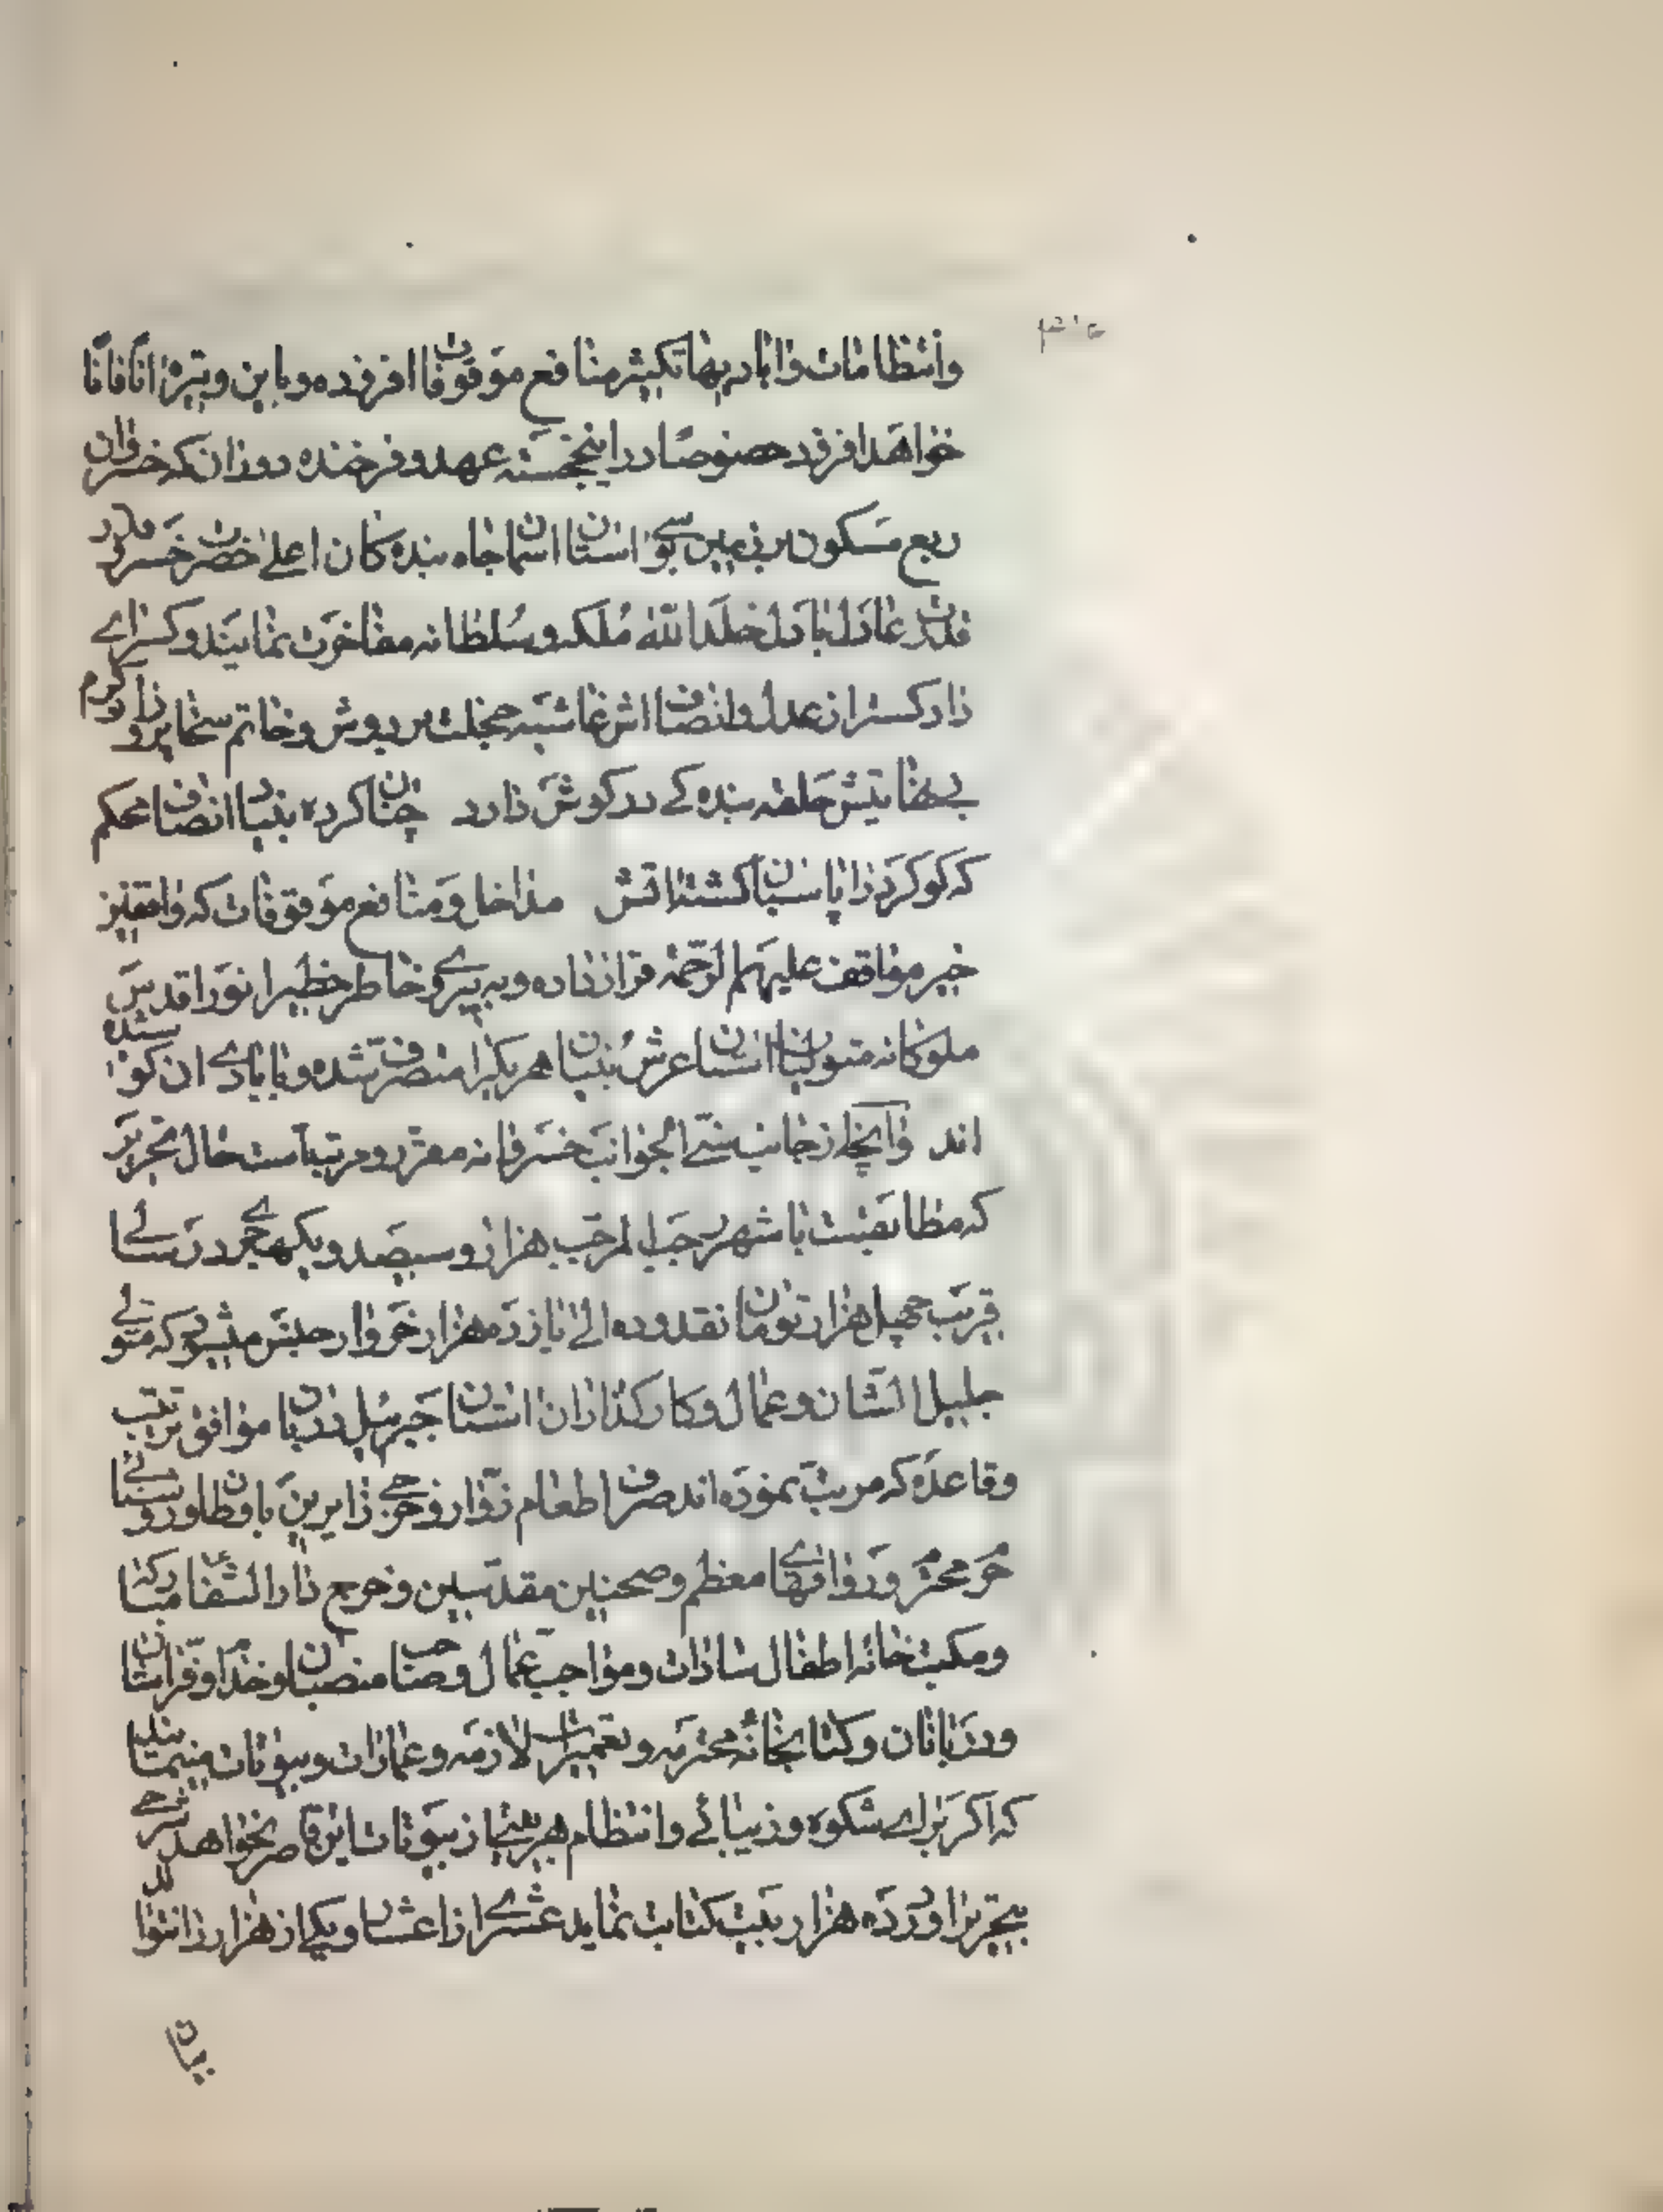 وانتظامات و ابادیها تکثیر منافع موقوفات افزوده و باین وتیره اناً فاناً
خواهد افزود خصوصاً در این خجسته عهد و فرخنده دوران که خسروان
ربع مسکون بر زمین بوسی استان اسمان جاه بنده کان اعلی حضرت خسرو
قدر قدرت عادل باذل خلد الله ملکه و سلطانه مفاخرت نمایند و کسرای
دادکستر از عدل و انصافش غاشیه خجلت بر دوش و خاتم سخا پرور از کرم
بی نهایتش حلقه بنده کی در کوش دارد چنان کرده بنیاد انصاف محکم
که کوکرد را پاسبان کشته اتش مداخل و منافع موقوفات که واقفین
خیر مواقف علیهم الرحمه قرار داده و به پیروی خاطر خطیر انور اقدس
ملوکانه متولیان استان عرش بنیان هر یک را متصرف شده و بابادی ان کوشیده
اند و انچه از جانب سنی الجوانب خسروانه مقرر و مرتب است حال تحریر
که مطابقست با شهر رجب المرجب هزار و سیصد و یک هجری در سالی
قریب چهل هزار تومان نقد و ده الی یازده هزار خروار جنس میشود که متولی
جلیل الشان و عمال و کارکذاران استان جبرئیل دربان موافق ترتیب
و قاعده که مرتب نموده اند صرف اطعام زوار و خرجی زایرین باوطان و روشنائی
حرم محترم و رواقهای معظم و صحنین مقدسین و خرج دارالشفای مبارکه
و مکتب خانه اطفال سادات و مواجب عمال و صاحب منصبان و خدام و فراشان
و دربانان و کتابخانه محترمه و تعمیرات لازمه و عمارات و بیوتات مینمایند
که اکر برای شکوه و زیبائی و انتظام هر یک از بیوتات این قاصر بخواهد شرحی
بتحریر اورد ده هزار بیت کتابت نماید عشری از اعشار و یکی از هزار را نتواند
بیان